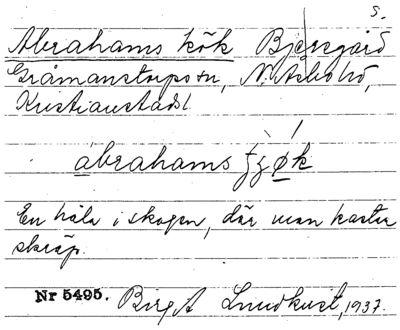 s.
Abrahams kök Bjersgård
Gråmanstorps sn, N. Åsbo hd,
Kristianstads l
abrahams
En håla i skogen, där man kastar
skräp.
Nr 5495. Birgit Lundkvist, 1937.